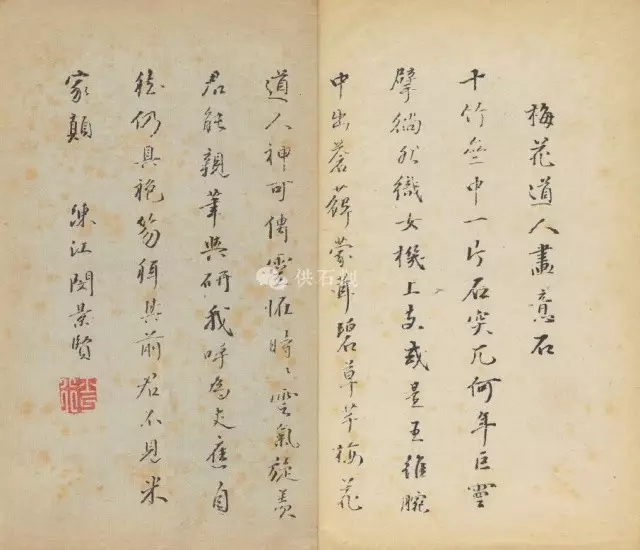 梅花道人畫意石
十竹中一片石突兀何年巨靈
擘倘然織女機上支或是王維腕
中出蒼蘚蒙茸碧草芊梅花
道人神可傳恠時〻雲氣旋羨
君能親筆與研我呼為丈應自
然仍具袍笏拜其前君不見米
家顛 江閔景賢
供石观